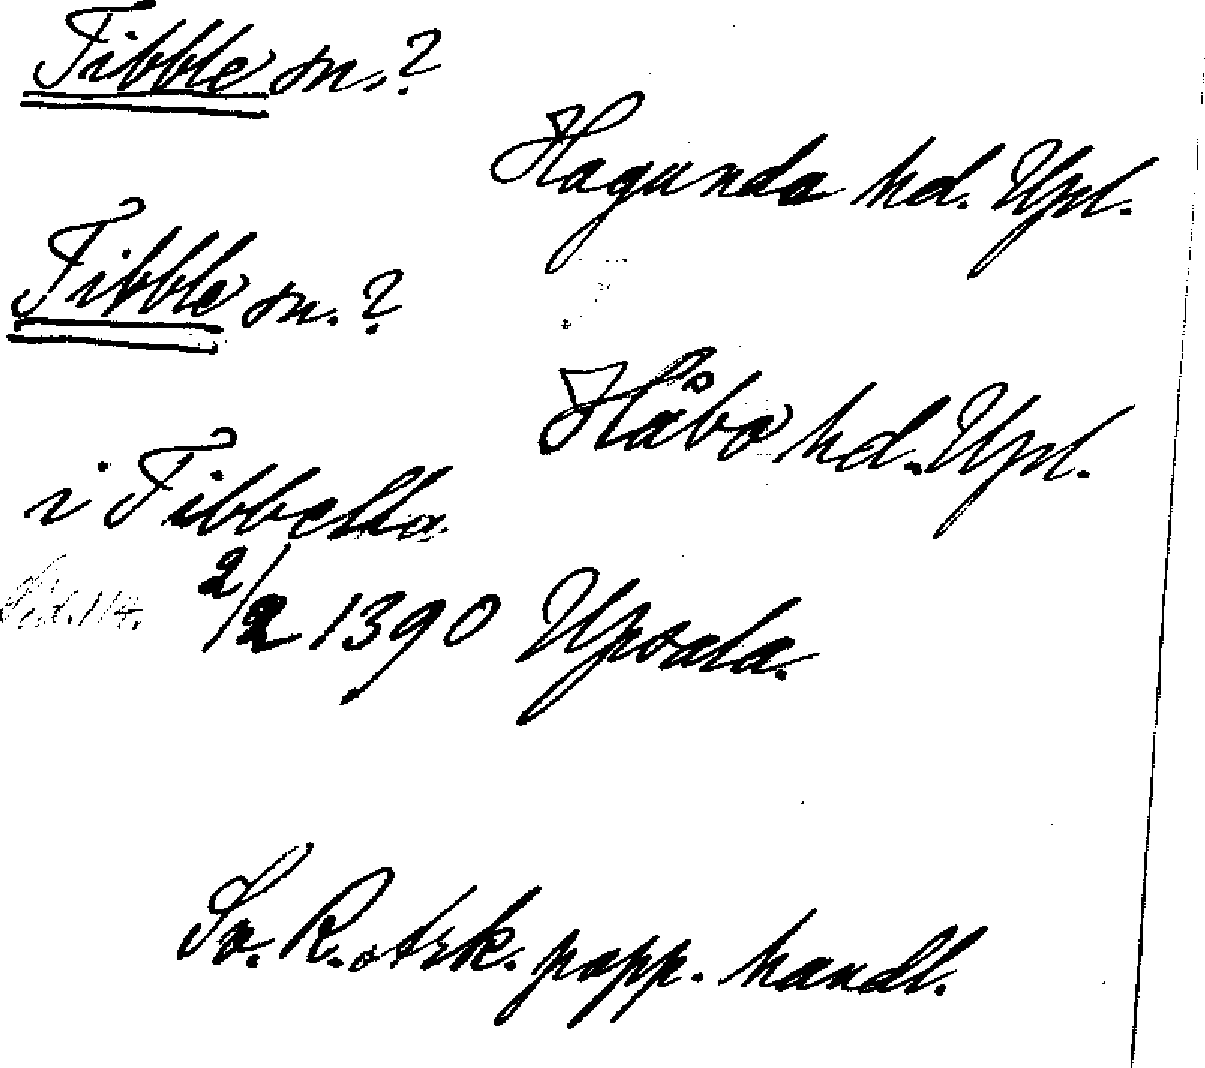 Tibble sn.?
Hagunda hd. Upl.
Tibble sn.?
Håbo hd. Upl.
i Tibbelta
2/2 1390 Upsala.
Sv. R. Ark. papp. handl.